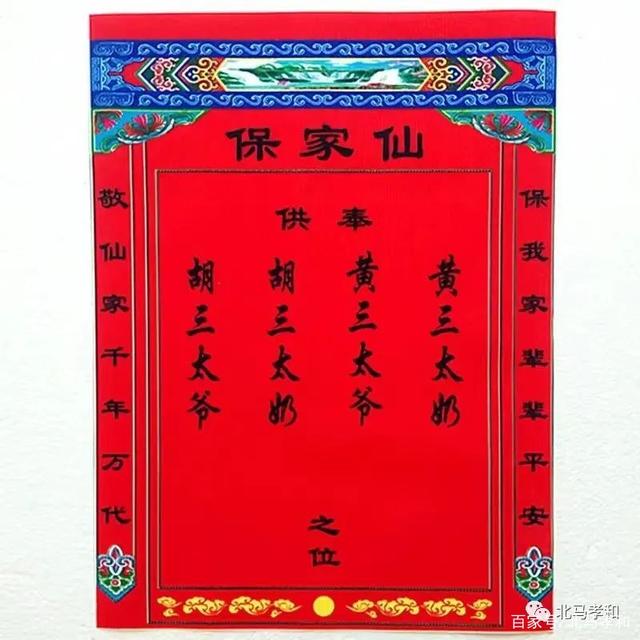 保家仙
供奉
敬仙家千年万代
胡三太爷
胡三太奶
黄三太爷
黄三太奶
保我家辈辈平安
之位
北马孝和
百家号/北马孝和